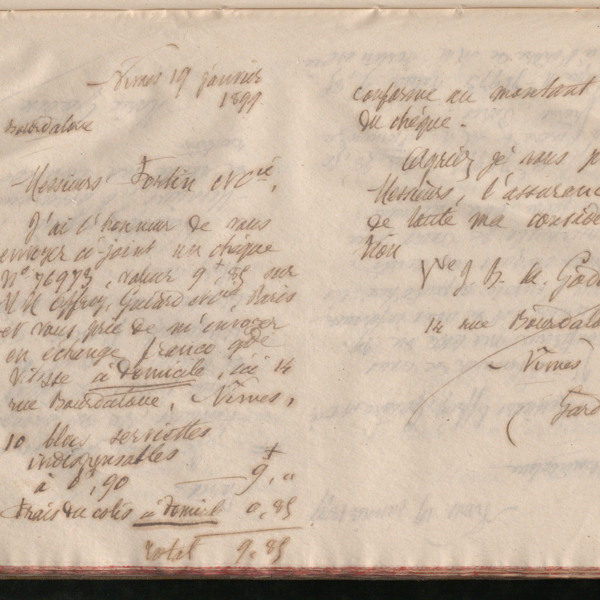 Nîmes 19 janvier
1899
Bourdaloue
Messieurs Fortin et Cie,
J'ai l'honneur de vous
envoyer ci-joint un chèque
N° 76973, valeur 9f,85 sur
M M Offroy, Guiard et Cie, Paris
et vous prie de m'envoyer
en échange franco gde
Vitesse à domicile, ici 14
rue Bourdaloue, Nîmes,
10 blocs serviettes
indispensables
à 0f,90 9f,"
Frais du colis à domicile 0,85
Total 9,85
conforme au montant
du chèque.
Agréez je vous p
Messieurs, l'assuranc
de toute ma considé
tion
Vve J. B. M. God
14 rue Bourdalo
Nîmes
(Gard